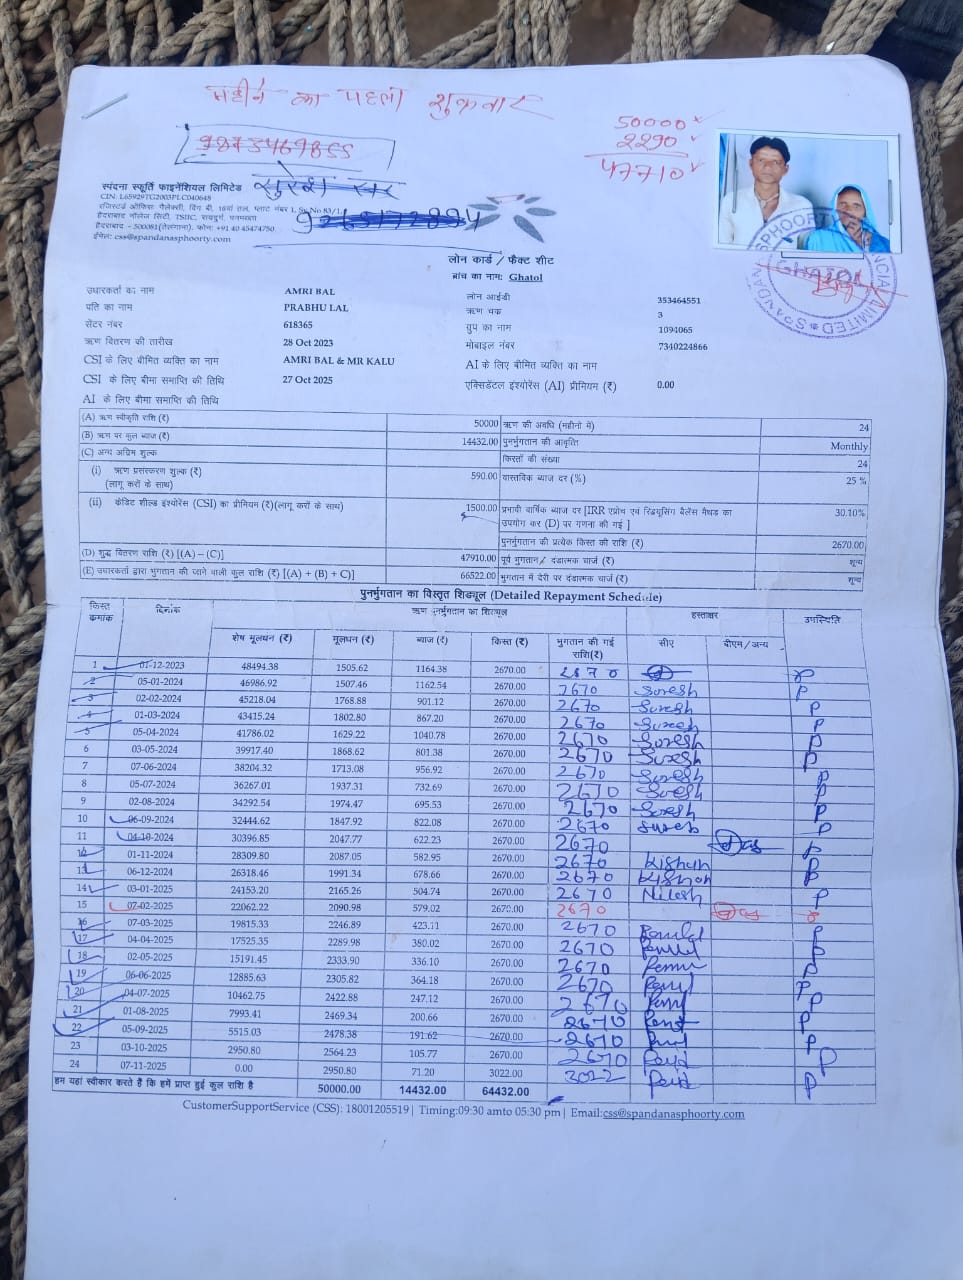 महीने का पहला शुक्रवार
50000
2290
47710
9873469855
स्पंदना स्फूर्ति फाइनेंशियल लिमिटेड
सुरेश सर
CIN: L65929TG2003PLC040648
रजिस्टर्ड ऑफिस: गैलेक्सी, विंग बी, 16वां तल, प्लाट नंबर 1, Sy No 83/1,
हैदराबाद नॉलेज सिटी, TSIIC, रायदुर्ग, पनमक्ता
हैदराबाद - 500081(तेलंगाना). फोन: +91 40 45474750
ईमेल: css@spandanasphoorty.com
GHATOL
लोन कार्ड / फैक्ट शीट
ब्रांच का नाम: Ghatol
उधारकर्ता का नाम AMRI BAL लोन आईडी 353464551
पति का नाम PRABHU LAL ऋण चक्र 3
सेंटर नंबर 618365 ग्रुप का नाम 1094065
ऋण वितरण की तारीख 28 Oct 2023 मोबाइल नंबर 7340224866
CSI के लिए बीमित व्यक्ति का नाम AMRI BAL & MR KALU AI के लिए बीमित व्यक्ति का नाम
CSI के लिए बीमा समाप्ति की तिथि 27 Oct 2025 एक्सिडेंटल इंश्योरेंस (AI) प्रीमियम (₹) 0.00
AI के लिए बीमा समाप्ति की तिथि
(A) ऋण स्वीकृति राशि (₹) 50000 ऋण की अवधि (महीनो में) 24
(B) ऋण पर कुल ब्याज (₹) 14432.00 पुनर्भुगतान की आवृत्ति Monthly
(C) अन्य अग्रिम शुल्क किस्तों की संख्या 24
(i) ऋण प्रसंस्करण शुल्क (₹) (लागू करों के साथ) 590.00 वास्तविक ब्याज दर (%) 25 %
(ii) क्रेडिट शील्ड इंश्योरेंस (CSI) का प्रीमियम (₹)(लागू करों के साथ) 1500.00 प्रभावी वार्षिक ब्याज दर [IRR एप्रोच एवं रिड्यूसिंग बैलेंस मैथड का उपयोग कर (D) पर गणना की गई ] 30.10%
पुनर्भुगतान की प्रत्येक किस्त की राशि (₹) 2670.00
(D) शुद्ध वितरण राशि (₹) [(A) – (C)] 47910.00 पूर्व भुगतान/ दंडात्मक चार्ज (₹) शून्य
(E) उधारकर्ता द्वारा भुगतान की जाने वाली कुल राशि (₹) [(A) + (B) + C)] 66522.00 भुगतान में देरी पर दंडात्मक चार्ज (₹) शून्य
पुनर्भुगतान का विस्तृत शिड्यूल (Detailed Repayment Schedule)
किस्त क्रमांक दिनांक ऋण पुनर्भुगतान का शिड्यूल हस्ताक्षर उपस्थिति
शेष मूलधन (₹) मूलधन (₹) ब्याज (₹) किस्त (₹) भुगतान की गई राशि(₹) सीए बीएम/अन्य
1 01-12-2023 48494.38 1505.62 1164.38 2670.00 2670 P
2 05-01-2024 46986.92 1507.46 1162.54 2670.00 2670 Suresh P
3 02-02-2024 45218.04 1768.88 901.12 2670.00 2670 Suresh P
4 01-03-2024 43415.24 1802.80 867.20 2670.00 2670 Suresh P
5 05-04-2024 41786.02 1629.22 1040.78 2670.00 2670 Suresh P
6 03-05-2024 39917.40 1868.62 801.38 2670.00 2670 Suresh P
7 07-06-2024 38204.32 1713.08 956.92 2670.00 2670 Suresh P
8 05-07-2024 36267.01 1937.31 732.69 2670.00 2670 Suresh P
9 02-08-2024 34292.54 1974.47 695.53 2670.00 2670 Suresh P
10 06-09-2024 32444.62 1847.92 822.08 2670.00 2670 Suresh P
11 04-10-2024 30396.85 2047.77 622.23 2670.00 2670 P
12 01-11-2024 28309.80 2087.05 582.95 2670.00 2670 Kishan P
13 06-12-2024 26318.46 1991.34 678.66 2670.00 2670 Kishan P
14 03-01-2025 24153.20 2165.26 504.74 2670.00 2670 Nilesh P
15 07-02-2025 22062.22 2090.98 579.02 2670.00 2670
16 07-03-2025 19815.33 2246.89 423.11 2670.00 2670 P
17 04-04-2025 17525.35 2289.98 380.02 2670.00 2670 P
18 02-05-2025 15191.45 2333.90 336.10 2670.00 2670 P
19 06-06-2025 12885.63 2305.82 364.18 2670.00 2670 P
20 04-07-2025 10462.75 2422.88 247.12 2670.00 2670 P
21 01-08-2025 7993.41 2469.34 200.66 2670.00 2670 P
22 05-09-2025 5515.03 2478.38 191.62 2670.00 2670 P
23 03-10-2025 2950.80 2564.23 105.77 2670.00 2670 P
24 07-11-2025 0.00 2950.80 71.20 3022.00 3022 P
हम यहां स्वीकार करते हैं कि हमें प्राप्त हुई कुल राशि है 50000.00 14432.00 64432.00
CustomerSupportService (CSS): 18001205519| Timing:09:30 amto 05:30 pm| Email:css@spandanasphoorty.com